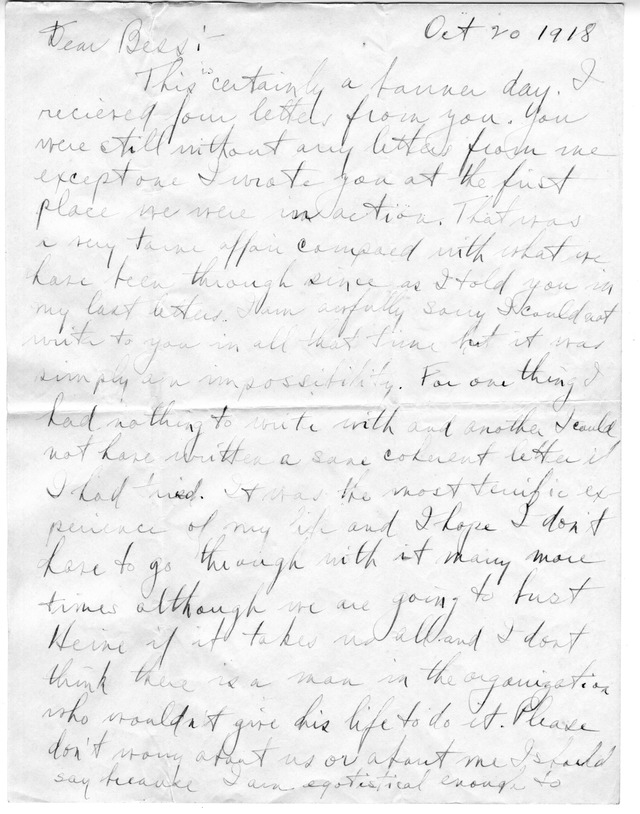 Oct 20 1918
Dear Bess:-
This is certainly a banner day. I
recieved four letters from you. You
were still without any letters from me
except one I wrote you at the first
place we were in action. That was
a very tame affair compaed with what we
have been through since as I told you in
my last letters. I am awfully sorry I could not
write to you in all that time but it was
simply an impossibility. For one thing I
had nothing to write with and another I could
not have written a sane coherent letter if
I had tried. It was the most terrific ex-
perience of my life and I hope I don't
have to go through with it many more
times although we are going to bust
Heine if it takes us all and I dont
think there is a man in the organization
who wouldn't give his life to do it. Please
don't worry about us or about me I should
say because I am egotistical enough to